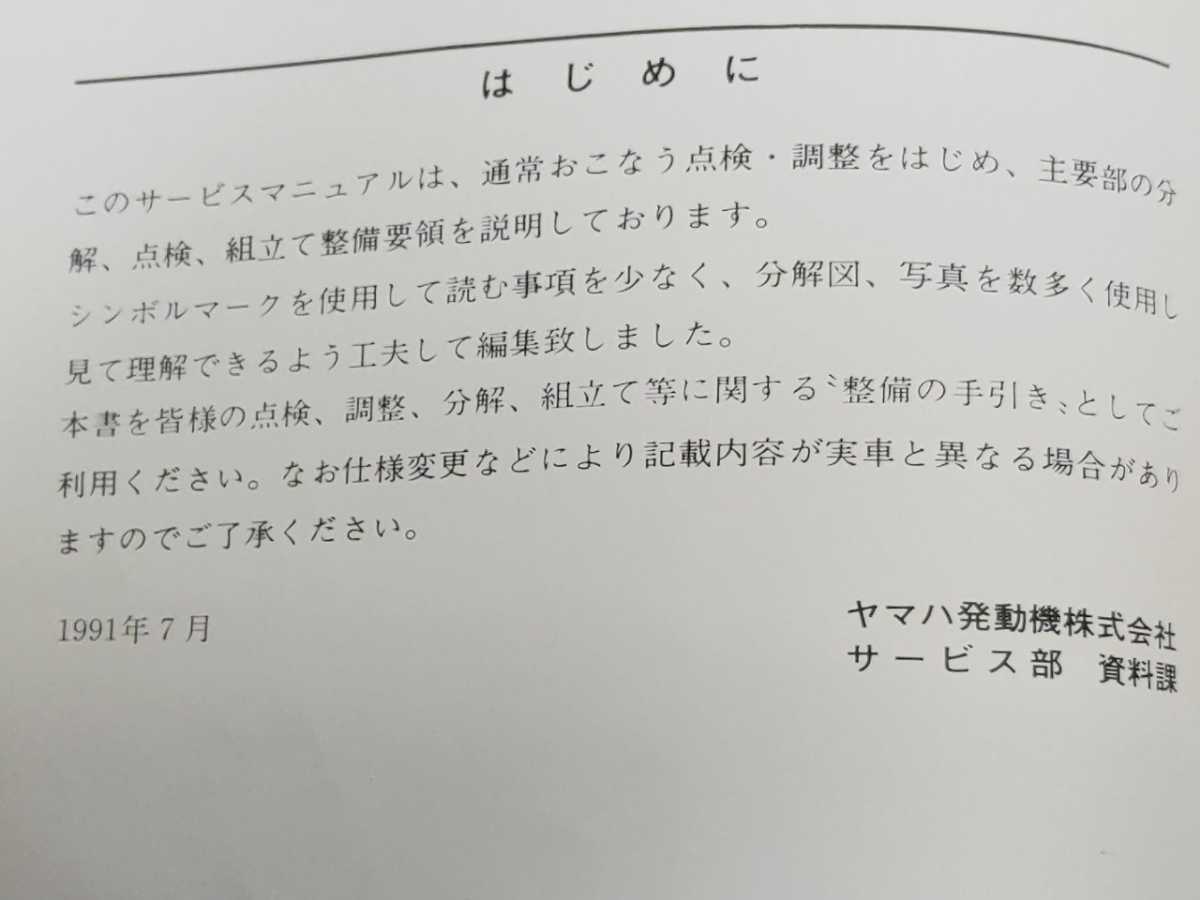 はじめに
このサービスマニュアルは、通常おこなう点検・調整をはじめ、主要部の分
解、点検、組立て整備要領を説明しております。
シンボルマークを使用して読む事項を少なく、分解図、写真を数多く使用し
見て理解できるよう工夫して編集致しました。
本書を皆様の点検、調整、分解、組立て等に関する〝整備の手引き〟としてご
利用ください。なお仕様変更などにより記載内容が実車と異なる場合があり
ますのでご了承ください。
1991年7月
ヤマハ発動機株式会社
サービス部 資料課